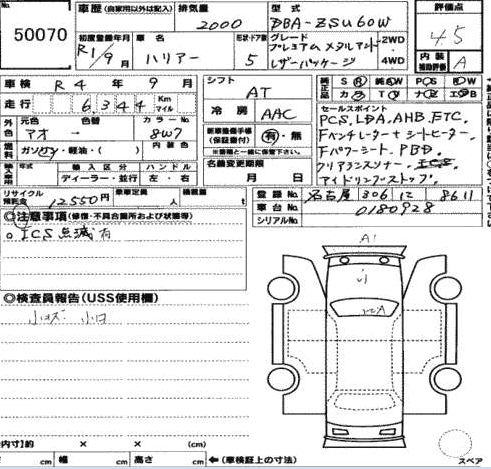 No. 50070
車歴 (自家用以外は記入) 排気量 2000 型式 DBA-ZSU60W 評価点 4.5
初度登録年月 R1/9 月 車名 ハリアー 形状・ドア数 5 グレード プレミアム メタル アンド レザーパッケージ 2WD・4WD 内装補助評価 A
車検 R4年9月 シフト AT
走行 6344 Km マイル 冷房 AAC
外色 元色 アオ 色替 カラーNo. 8W7
セールスポイント
PCS, LDA, AHB, ETC,
Fベンチレーター+シートヒーター,
Fパワーシート, PBD,
クリアランスソナー,
アイドリングストップ
新車整備手帳(保証書付) 有・無
※書類と一緒に保管下さい
燃料 ガソリン・軽油・( ) 内装色
輸入車用 年式 輸入区分 ディーラー・並行 ハンドル 左・右
名義変更期限 月 日
リサイクル預託金 12550円 乗車定員 人 積載量 t
登録No. 名古屋 306 に 8611
車台No. 0180928
シリアルNo.
◎注意事項 (修復・不具合箇所および状態等)
○ICS 点滅有
◎検査員報告 (USS使用欄)
小キズ 小凹
A1
内寸 約 × × (cm)
cm 幅 cm 高さ cm ← (車検証上の寸法)
スペア